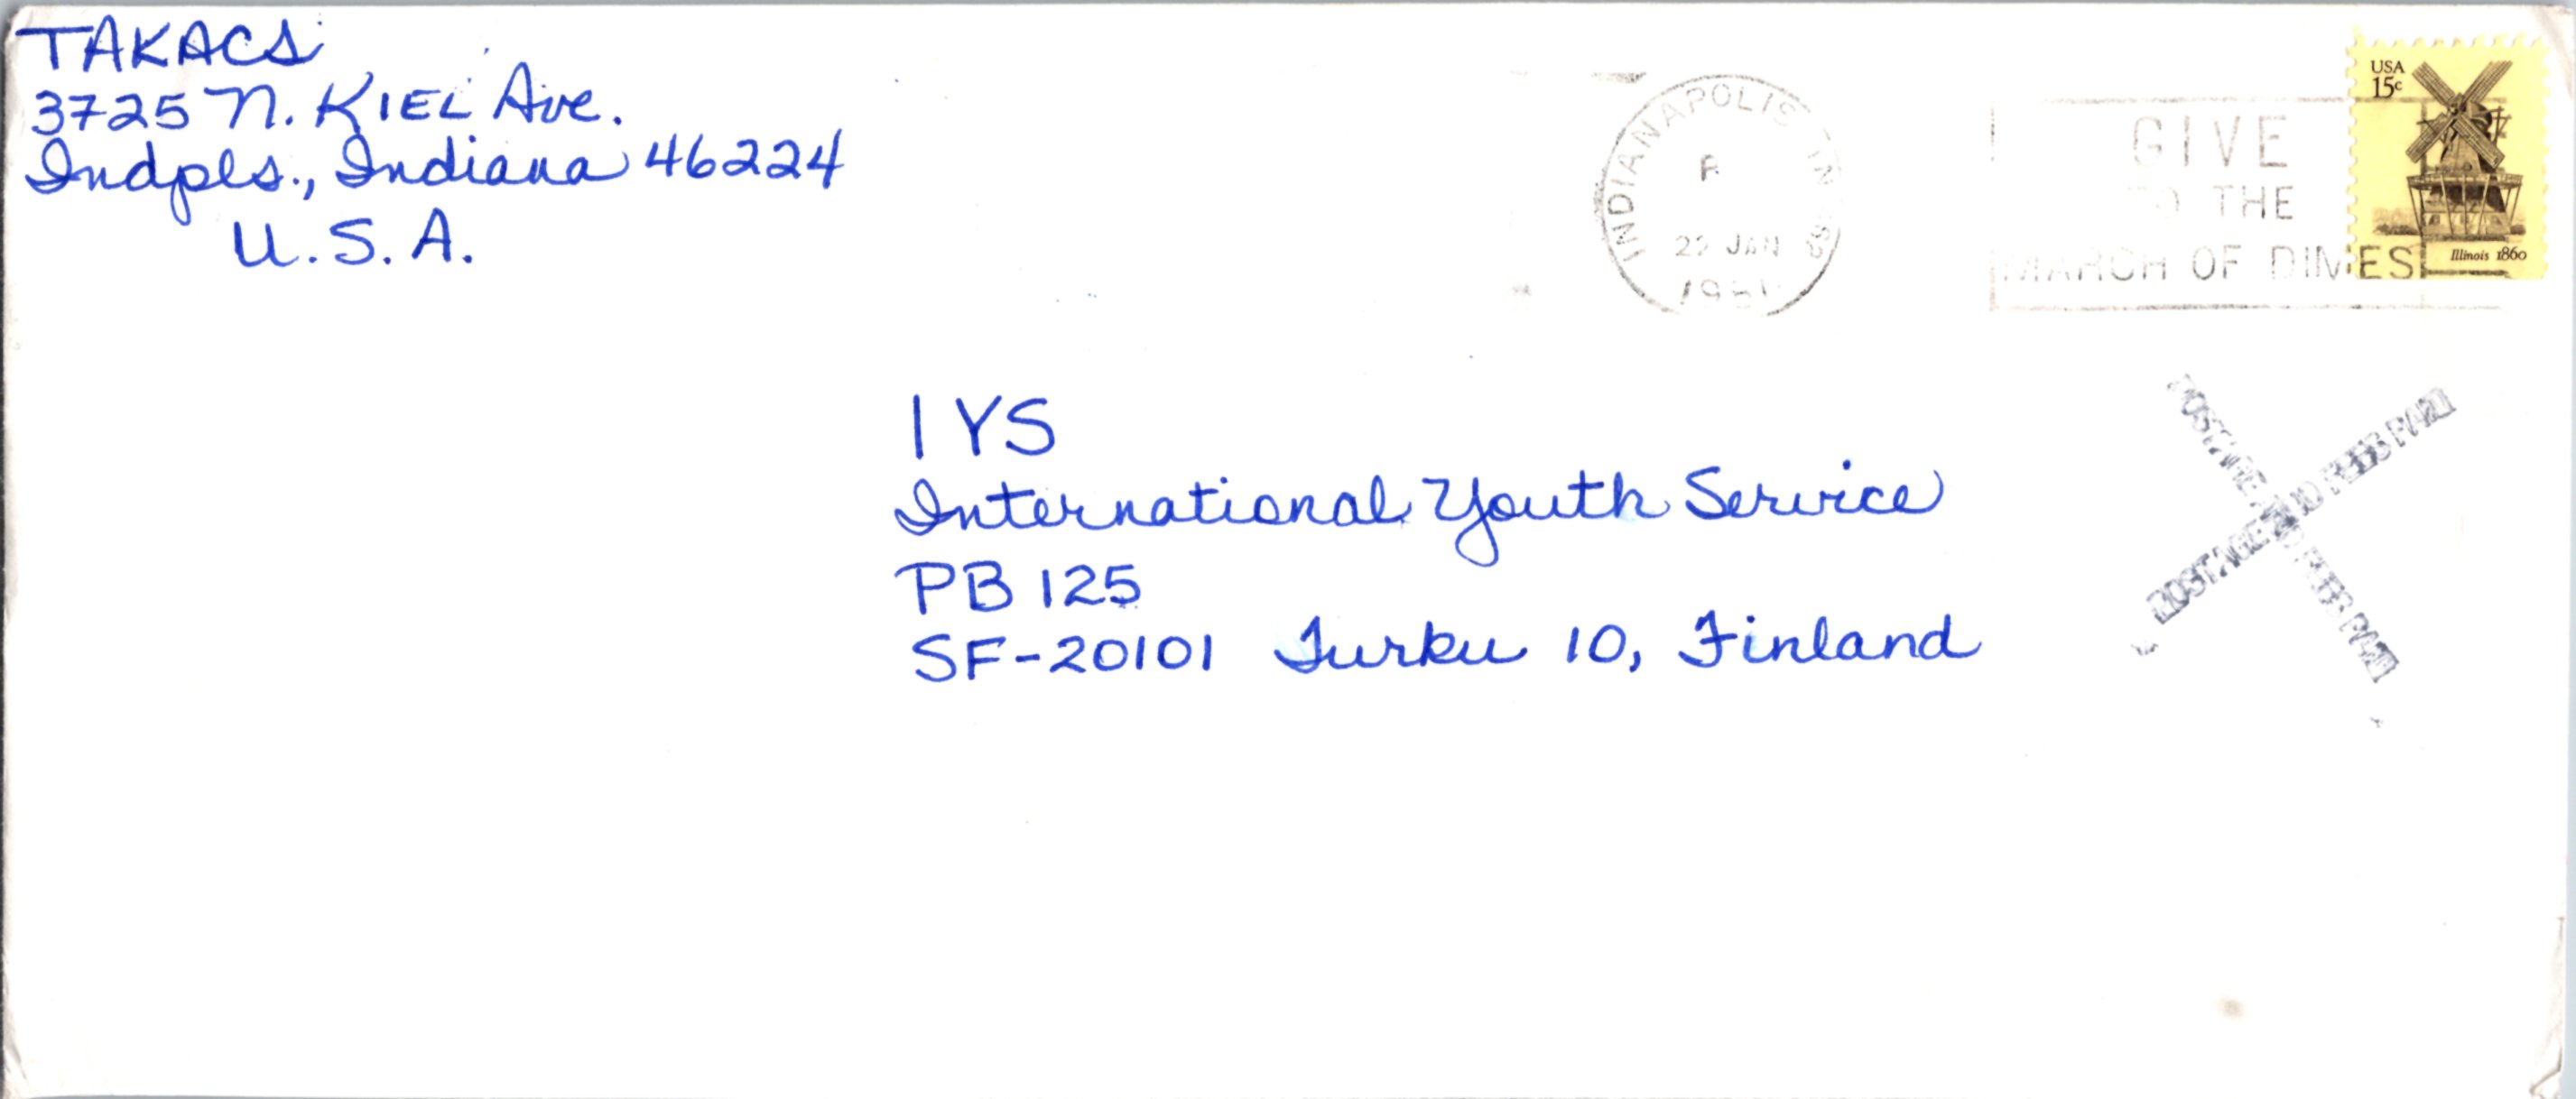 TAKACS
3725 N. KIEL Ave.
Indpls., Indiana 46224
U.S.A.
INDIANAPOLIS IN
22 JAN
GIVE
TO THE
MARCH OF DIMES
USA
15c
Illinois 1860
IYS
International Youth Service
PB 125
SF-20101 Turku 10, Finland
POSTAGE AND FEES PAID
POSTAGE AND FEES PAID